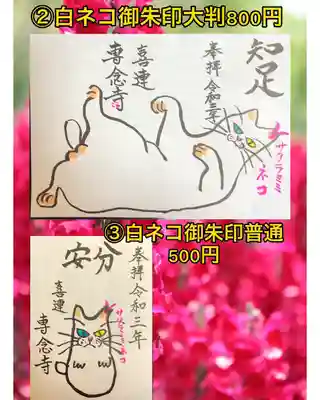 ②白ネコ御朱印大判800円
知足
奉拝 令和三年
喜連
専念寺
サクラミミネコ
③白ネコ御朱印普通
500円
安分
奉拝 令和三年
喜連
専念寺
サクラミミネコ